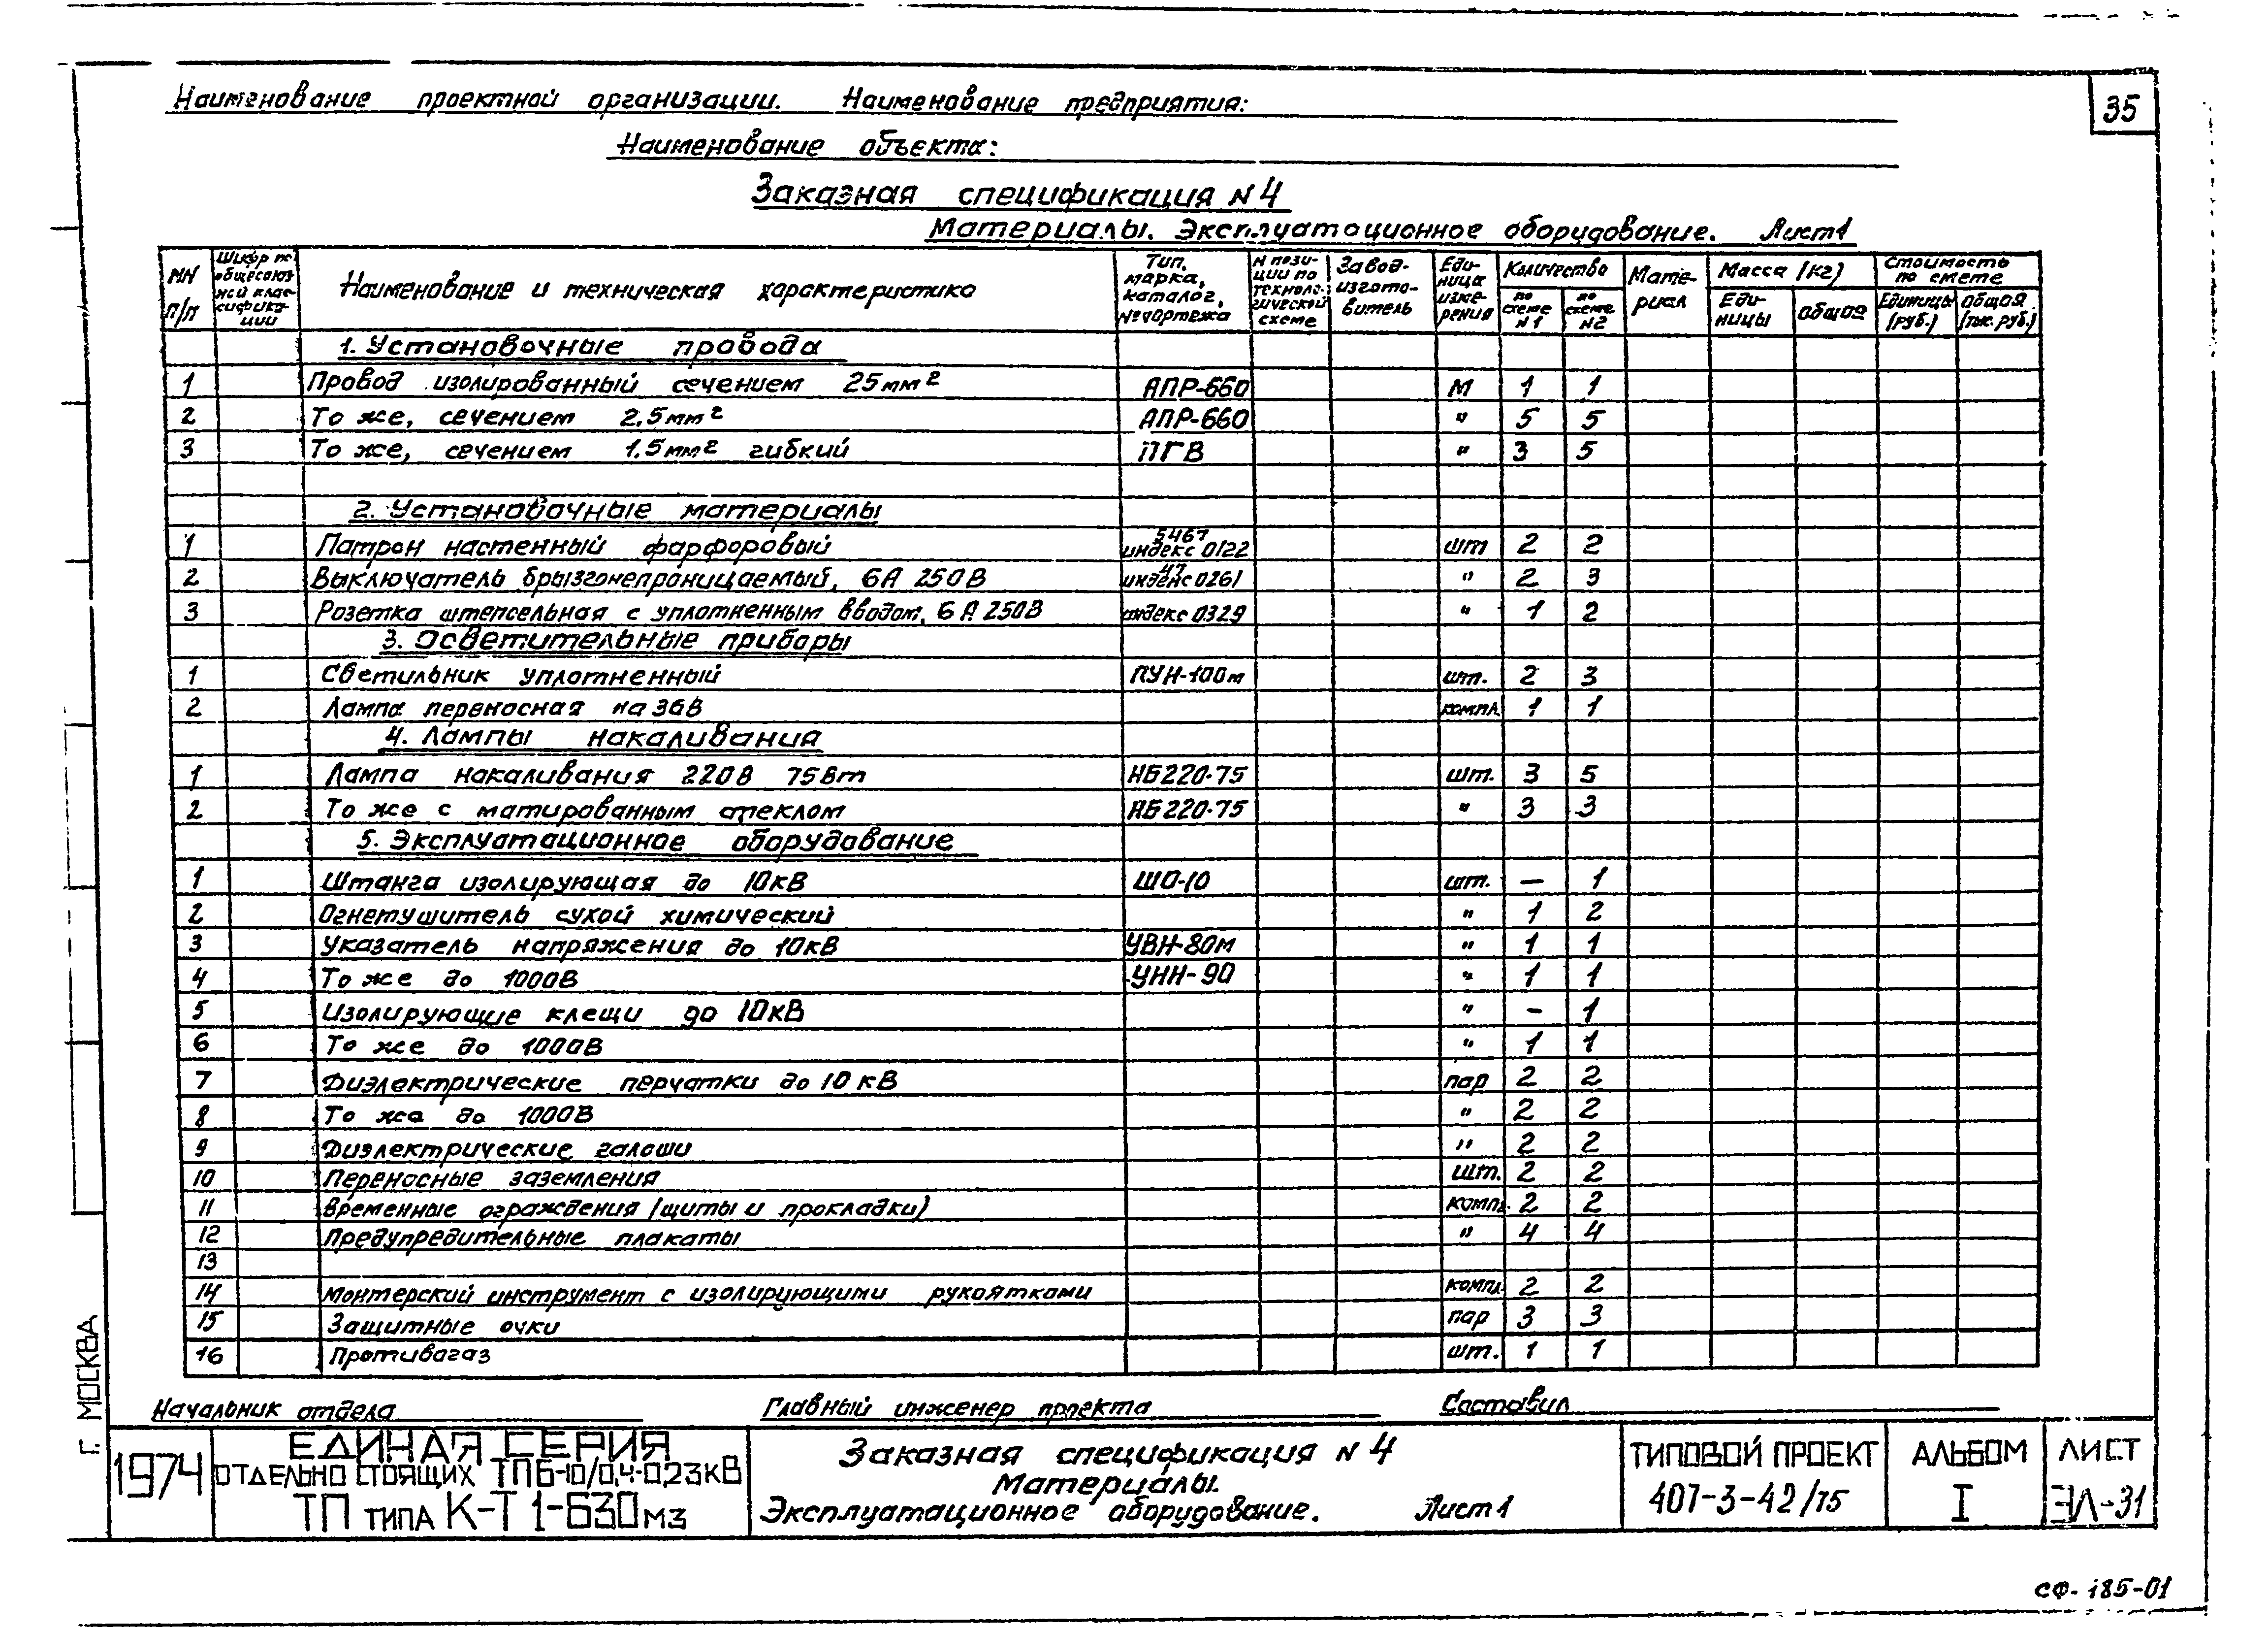 35
Наименование проектной организации. Наименование предприятия:
Наименование объекта:
Заказная спецификация N 4
Материалы. Эксплуатоционное оборудование. Лист 1
NN п/п | Шифр по общесоюзной классификации | Наименование и техническая характеристика | Тип, марка, каталог, № чертежа | N позиции по технологической схеме | Завод-изготовитель | Единица измерения | Количество по схеме N1 | по схеме N2 | Материал | Масса (кг) Единицы | общая | Стоимость по смете Единицы (руб.) | общая (тыс. руб.)
1. Установочные провода
1 Провод изолированный сечением 25 мм² АПР-660 М 1 1
2 То же, сечением 2,5 мм² АПР-660 " 5 5
3 То же, сечением 1,5 мм² гибкий ПГВ " 3 5
2. Установочные материалы
1 Патрон настенный фарфоровый 5467 индекс 0122 шт 2 2
2 Выключатель брызгонепроницаемый, 6А 250В 47 индекс 0261 " 2 3
3 Розетка штепсельная с уплотненным вводом, 6А 250В индекс 0329 " 1 2
3. Осветительные приборы
1 Светильник уплотненный ПУН-100м шт. 2 3
2 Лампа переносная на 36В компл. 1 1
4. Лампы накаливания
1 Лампа накаливания 220В 75Вт НБ220-75 шт. 3 5
2 То же с матированным стеклом НБ220-75 " 3 3
5. Эксплуатационное оборудование
1 Штанга изолирующая до 10кВ ШО-10 шт. — 1
2 Огнетушитель сухой химический " 1 2
3 Указатель напряжения до 10кВ УВН-80м " 1 1
4 То же до 1000В УНН-90 " 1 1
5 Изолирующие клещи до 10кВ " - 1
6 То же до 1000В " 1 1
7 Диэлектрические перчатки до 10 кВ пар 2 2
8 То же до 1000В " 2 2
9 Диэлектрические галоши " 2 2
10 Переносные заземления шт. 2 2
11 Временные ограждения (щиты и прокладки) компл. 2 2
12 Предупредительные плакаты " 4 4
13
14 Монтерский инструмент с изолирующими рукоятками компл. 2 2
15 Защитные очки пар 3 3
16 Противагаз шт. 1 1
Начальник отдела Главный инженер проекта Составил
Г. МОСКВА
1974
ЕДИНАЯ СЕРИЯ
ОТДЕЛЬНО СТОЯЩИХ ТП 6-10/0,4-0,23кВ
ТП ТИПА К-Т 1-630 МЗ
Заказная спецификация N 4
Материалы.
Эксплуатационное оборудование. Лист 1
ТИПОВОЙ ПРОЕКТ
407-3-42/75
АЛЬБОМ
I
ЛИСТ
ЭЛ-31
СФ-185-01